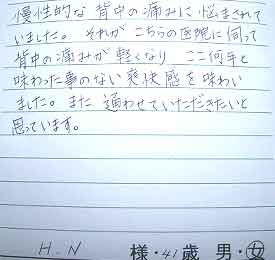 慢性的な 背中の痛みに悩まされて
いました。 それが こちらの医院に伺って
背中の痛みが 軽くなり ここ何年と
味わった事のない爽快感を味わい
ました。また 通わせていただきたいと
思っています。
H.N 様・41歳 男・女